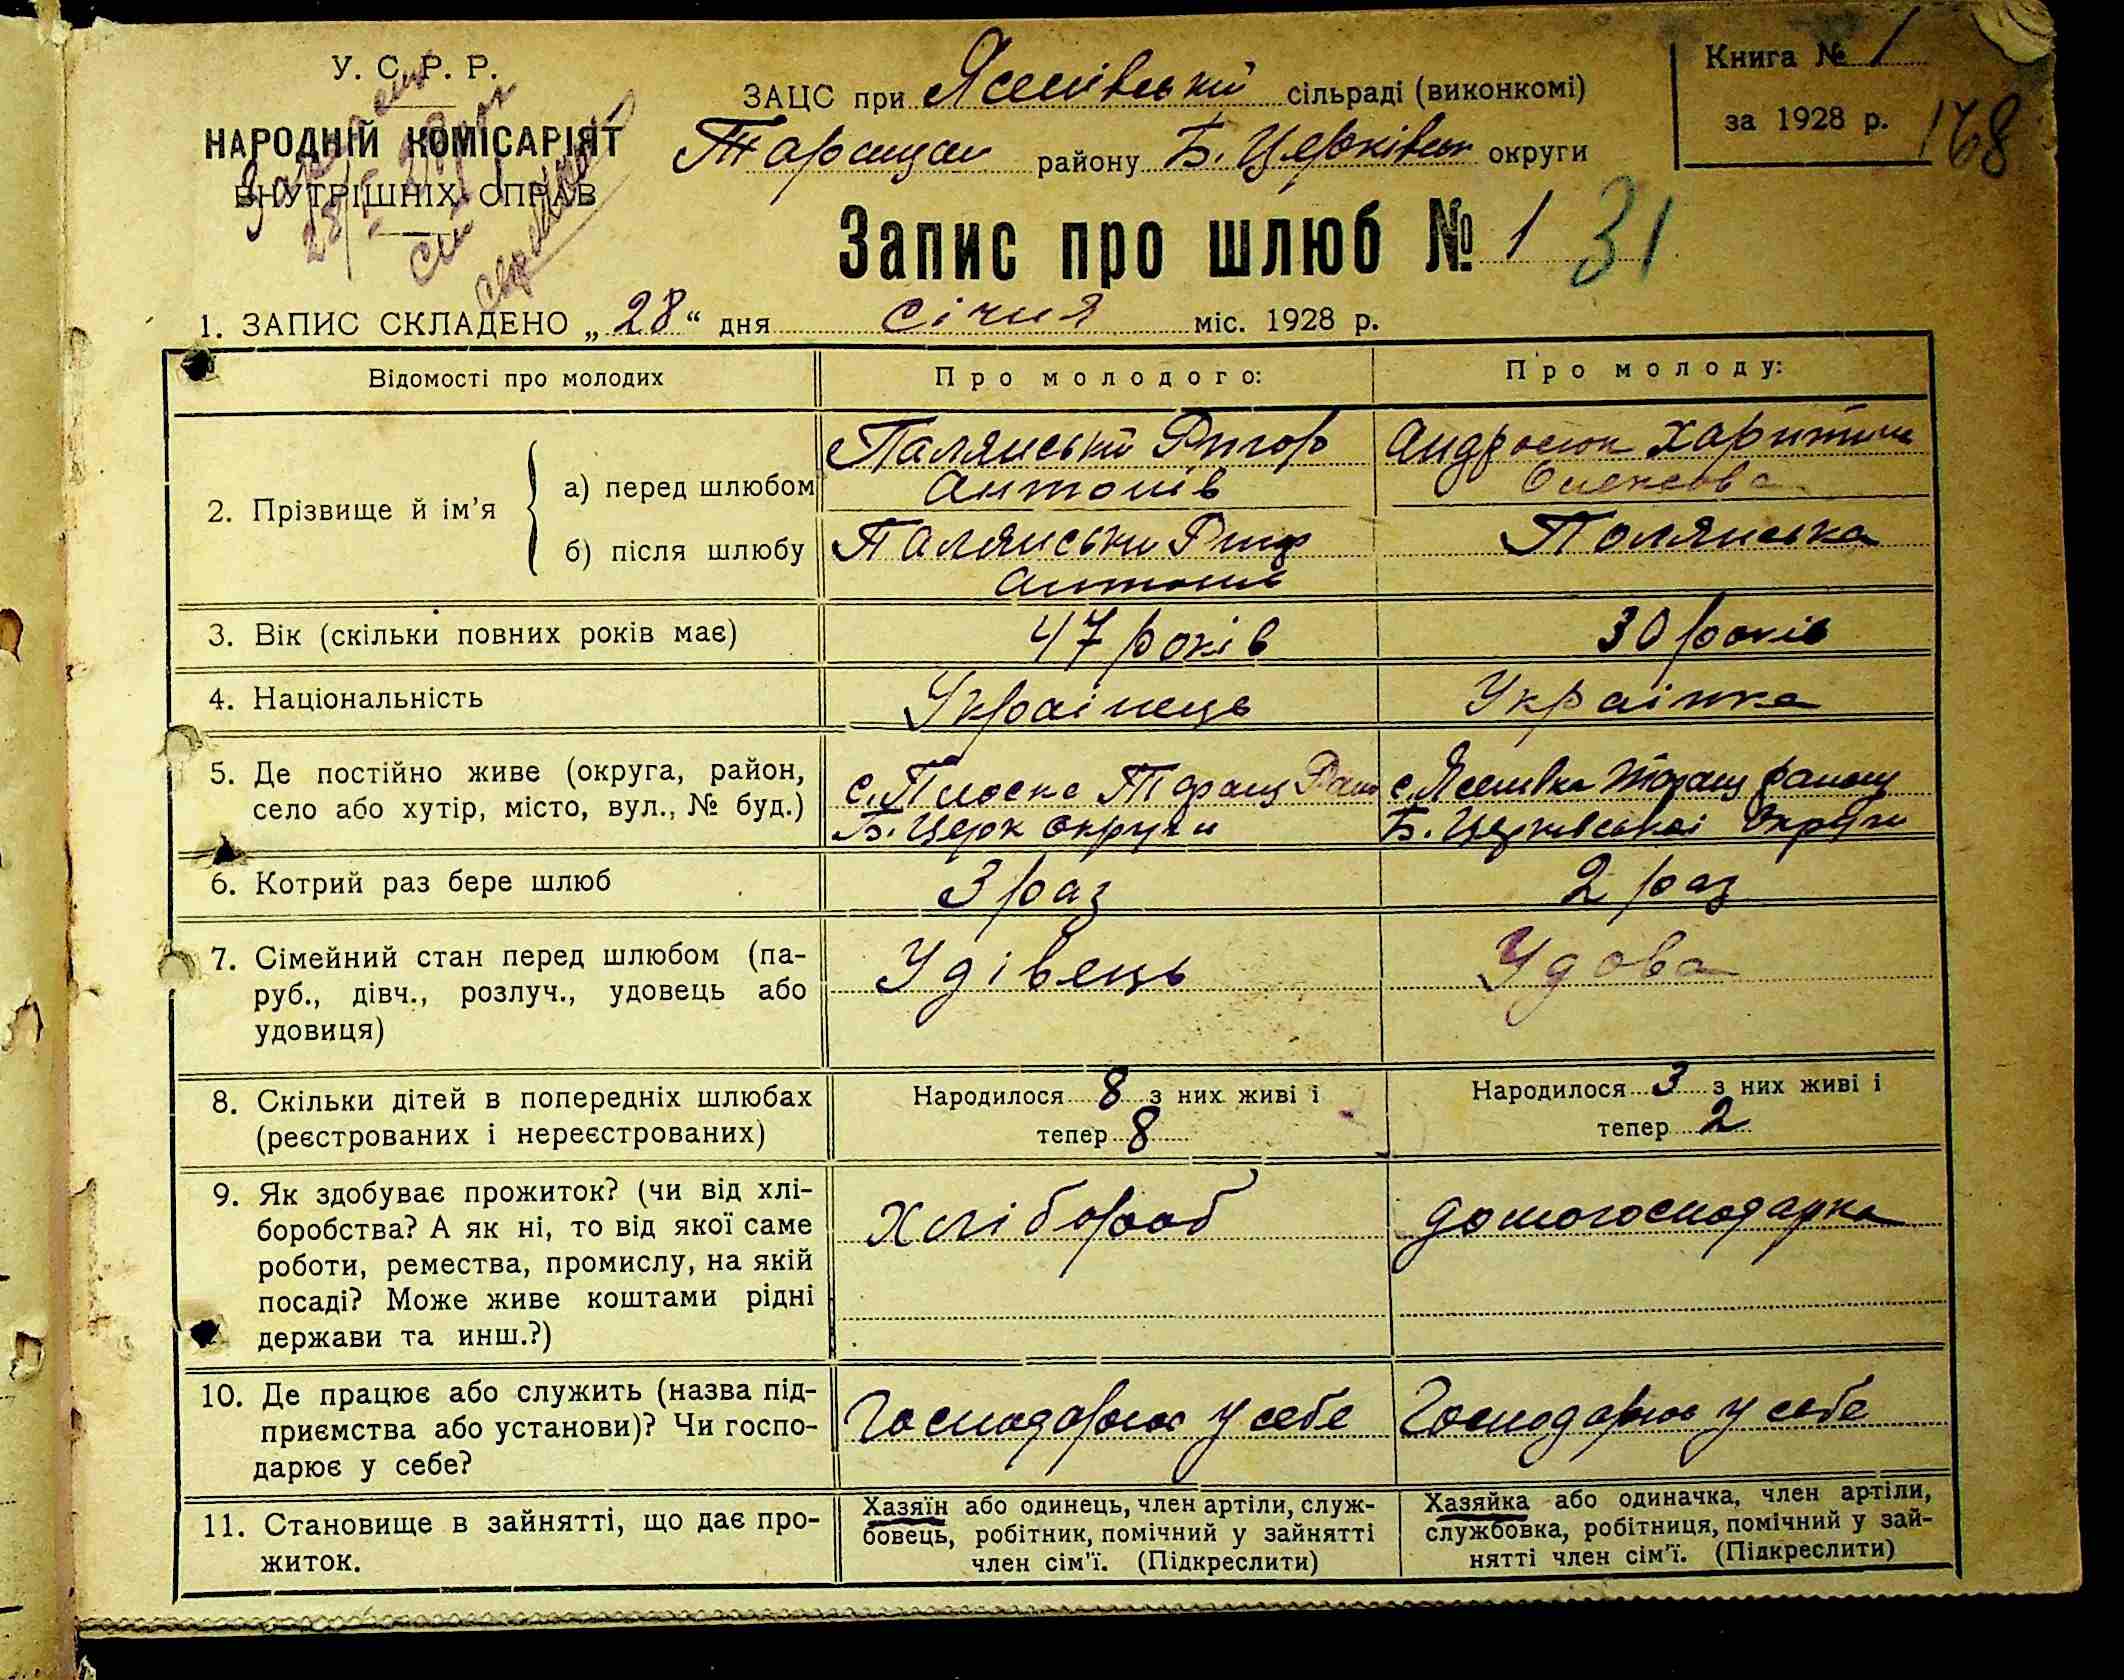 У. С. Р. Р.
НАРОДНІЙ КОМІСАРІЯТ
ВНУТРІШНІХ СПРАВ
ЗАЦС при Ясенівській сільраді (виконкомі)
Таращан району Б. Церківськ округи
Книга № 1
за 1928 р.
168
Запис про шлюб № 1 31
1. ЗАПИС СКЛАДЕНО „28“ дня січня міс. 1928 р.
Відомості про молодих
Про молодого:
Про молоду:
2. Прізвище й ім’я
а) перед шлюбом
Палянський Григор
Антонів
Андросюк Харитина
Олексова
б) після шлюбу
Палянськи Григ
Антонів
Полянська
3. Вік (скільки повних років має)
47 років
30 років
4. Національність
Українець
Українка
5. Де постійно живе (округа, район,
село або хутір, місто, вул., № буд.)
с. Плоске Таращ Рай
Б. Церк округи
с. Ясенівка Таращ району
Б. Церківської Округи
6. Котрий раз бере шлюб
3 раз
2 раз
7. Сімейний стан перед шлюбом (па-
руб., дівч., розлуч., удовець або
удовиця)
Удівець
Удова
8. Скільки дітей в попередніх шлюбах
(реєстрованих і нереєстрованих)
Народилося 8 з них живі і
тепер 8
Народилося 3 з них живі і
тепер 2
9. Як здобуває прожиток? (чи від хлі-
боробства? А як ні, то від якої саме
роботи, ремества, промислу, на якій
посаді? Може живе коштами рідні
держави та инш.?)
Хлібороб
домогосподарка
10. Де працює або служить (назва під-
приємства або установи)? Чи госпо-
дарює у себе?
Господарює у себе
Господарює у себе
11. Становище в зайнятті, що дає про-
житок.
Хазяїн або одинець, член артіли, служ-
бовець, робітник, помічний у зайнятті
член сім’ї. (Підкреслити)
Хазяйка або одиначка, член артіли,
службовка, робітниця, помічний у зай-
нятті член сім’ї. (Підкреслити)